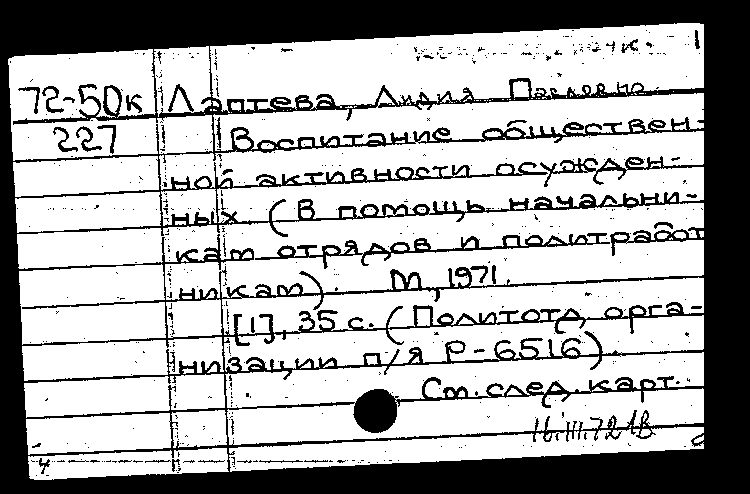 1
72-50к Лаптева, Лидия Павловна
227 Воспитание обществен-
ной активности осужден-
ных. (В помощь начальни-
кам отрядов и политработ
никам). М., 1971.
[1], 35 с. (Политотд. орга-
низации п/я Р-6516).
См. след. карт.
16.III.72
4